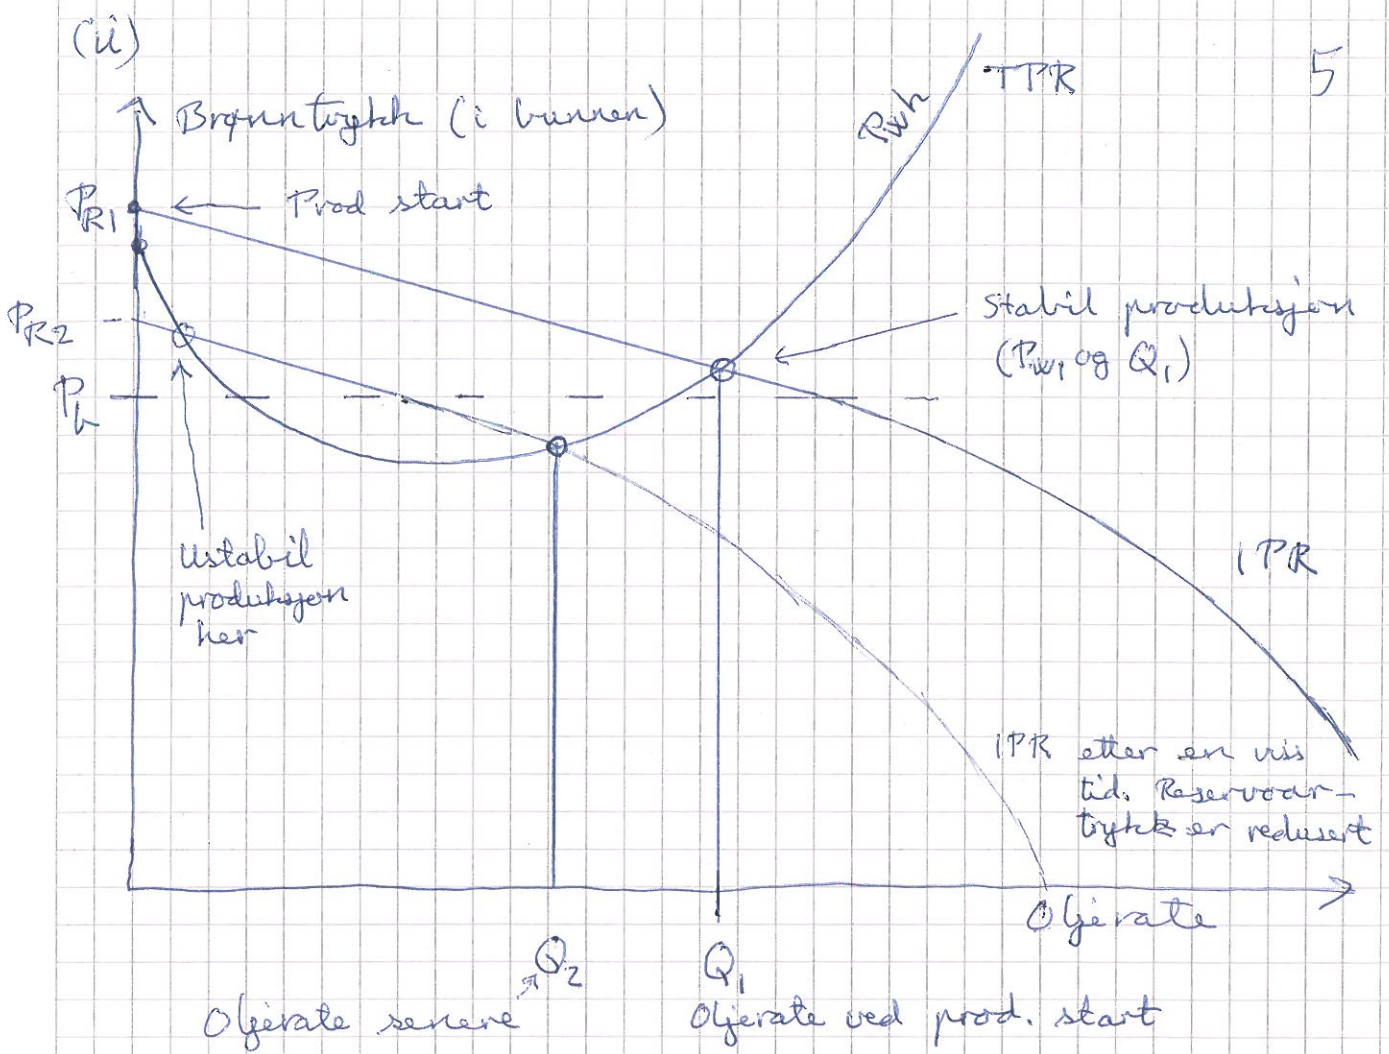 (ii)
5
TPR
Pwh
Brønntrykk (i bunnen)
PR1
Prod start
Stabil produksjon
(Pw1 og Q1)
PR2
Pb
Ustabil
produksjon
her
IPR
IPR etter en viss
tid. Reservoar-
trykk er redusert
Oljerate
Q2
Q1
Oljerate senere
Oljerate ved prod. start